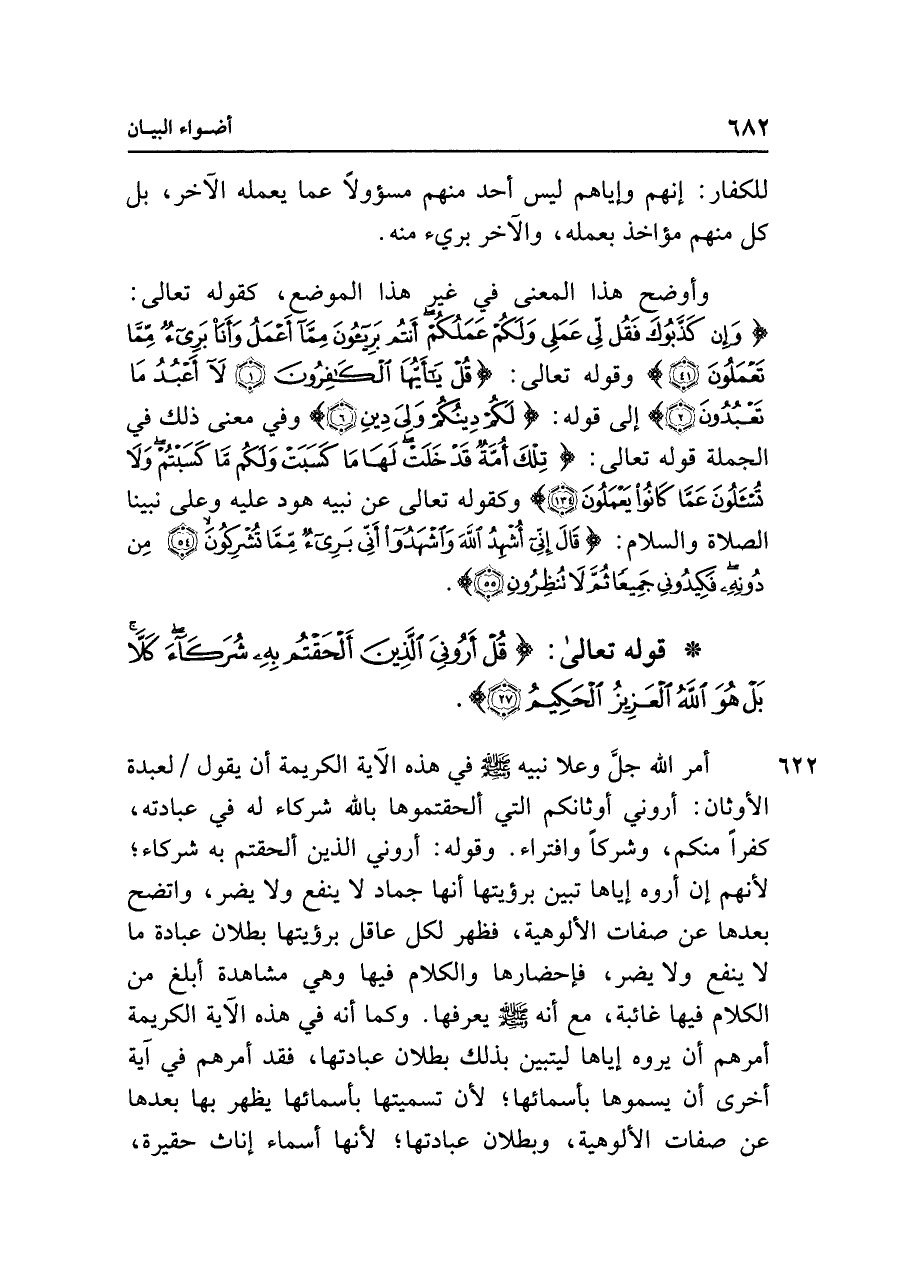 ٦٨٢ أضـواء البيـان
للكفار: إنهم وإياهم ليس أحد منهم مسؤولاً عما يعمله الآخر، بل
كل منهم مؤاخذ بعمله، والآخر بريء منه.
وأوضح هذا المعنى في غير هذا الموضع، كقوله تعالى:
﴿ وَإِن كَذَّبُوكَ فَقُل لِّي عَمَلِي وَلَكُمْ عَمَلُكُمْۖ أَنتُم بَرِيٓـُٔونَ مِمَّآ أَعْمَلُ وَأَنَا۠ بَرِيٓءٌ مِّمَّا
تَعْمَلُونَ ﴿٤١﴾ ﴾ وقوله تعالى: ﴿ قُلْ يَٰٓأَيُّهَا ٱلْكَٰفِرُونَ ﴿١﴾ لَآ أَعْبُدُ مَا
تَعْبُدُونَ ﴿٢﴾ ﴾ إلى قوله: ﴿ لَكُمْ دِينُكُمْ وَلِيَ دِينِ ﴿٦﴾ ﴾ وفي معنى ذلك في
الجملة قوله تعالى: ﴿ تِلْكَ أُمَّةٌ قَدْ خَلَتْۖ لَهَا مَا كَسَبَتْ وَلَكُم مَّا كَسَبْتُمْۖ وَلَا
تُسْـَٔلُونَ عَمَّا كَانُوا۟ يَعْمَلُونَ ﴿١٣٤﴾ ﴾ وكقوله تعالى عن نبيه هود عليه وعلى نبينا
الصلاة والسلام: ﴿ قَالَ إِنِّيٓ أُشْهِدُ ٱللَّهَ وَٱشْهَدُوٓا۟ أَنِّي بَرِيٓءٌ مِّمَّا تُشْرِكُونَۙ ﴿٥٤﴾ مِن
دُونِهِۦۖ فَكِيدُونِي جَمِيعًا ثُمَّ لَا تُنظِرُونِ ﴿٥٥﴾ ﴾.
* قوله تعالىٰ: ﴿ قُلْ أَرُونِيَ ٱلَّذِينَ أَلْحَقْتُم بِهِۦ شُرَكَآءَۖ كَلَّاۚ
بَلْ هُوَ ٱللَّهُ ٱلْعَزِيزُ ٱلْحَكِيمُ ﴿٢٧﴾ ﴾.
٦٢٢ أمر الله جلَّ وعلا نبيه ﷺ في هذه الآية الكريمة أن يقول / لعبدة
الأوثان: أروني أوثانكم التي ألحقتموها بالله شركاء له في عبادته،
كفراً منكم، وشركاً وافتراء. وقوله: أروني الذين ألحقتم به شركاء؛
لأنهم إن أروه إياها تبين برؤيتها أنها جماد لا ينفع ولا يضر، واتضح
بعدها عن صفات الألوهية، فظهر لكل عاقل برؤيتها بطلان عبادة ما
لا ينفع ولا يضر، فإحضارها والكلام فيها وهي مشاهدة أبلغ من
الكلام فيها غائبة، مع أنه ﷺ يعرفها. وكما أنه في هذه الآية الكريمة
أمرهم أن يروه إياها ليتبين بذلك بطلان عبادتها، فقد أمرهم في آية
أخرى أن يسموها بأسمائها؛ لأن تسميتها بأسمائها يظهر بها بعدها
عن صفات الألوهية، وبطلان عبادتها؛ لأنها أسماء إناث حقيرة،